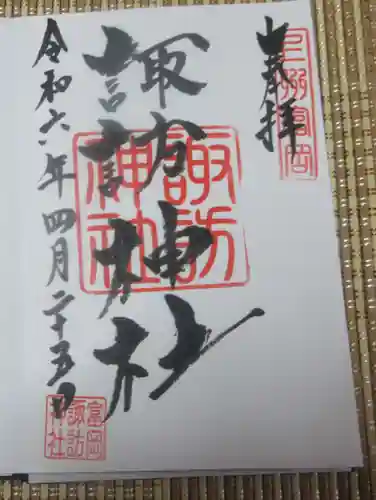 奉拝
上州富岡
諏訪神社
諏訪神社
令和六年四月二十五日
富岡
諏訪
神社